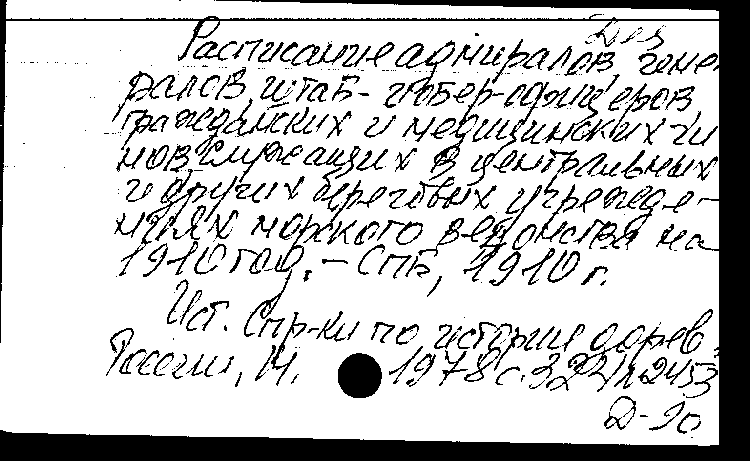 Дез
Расписание адмиралов, гене-
ралов, штаб- и обер-офицеров
гражданских и медицинских чи
нов служащих в центральных
и других береговых учрежде-
ниях морского ведомства на
1910 год. - Спб, 1910 г.
Ист. Спр-ки по истории дорев.
России, М. 1978 с. 324 № 2453
Д-20